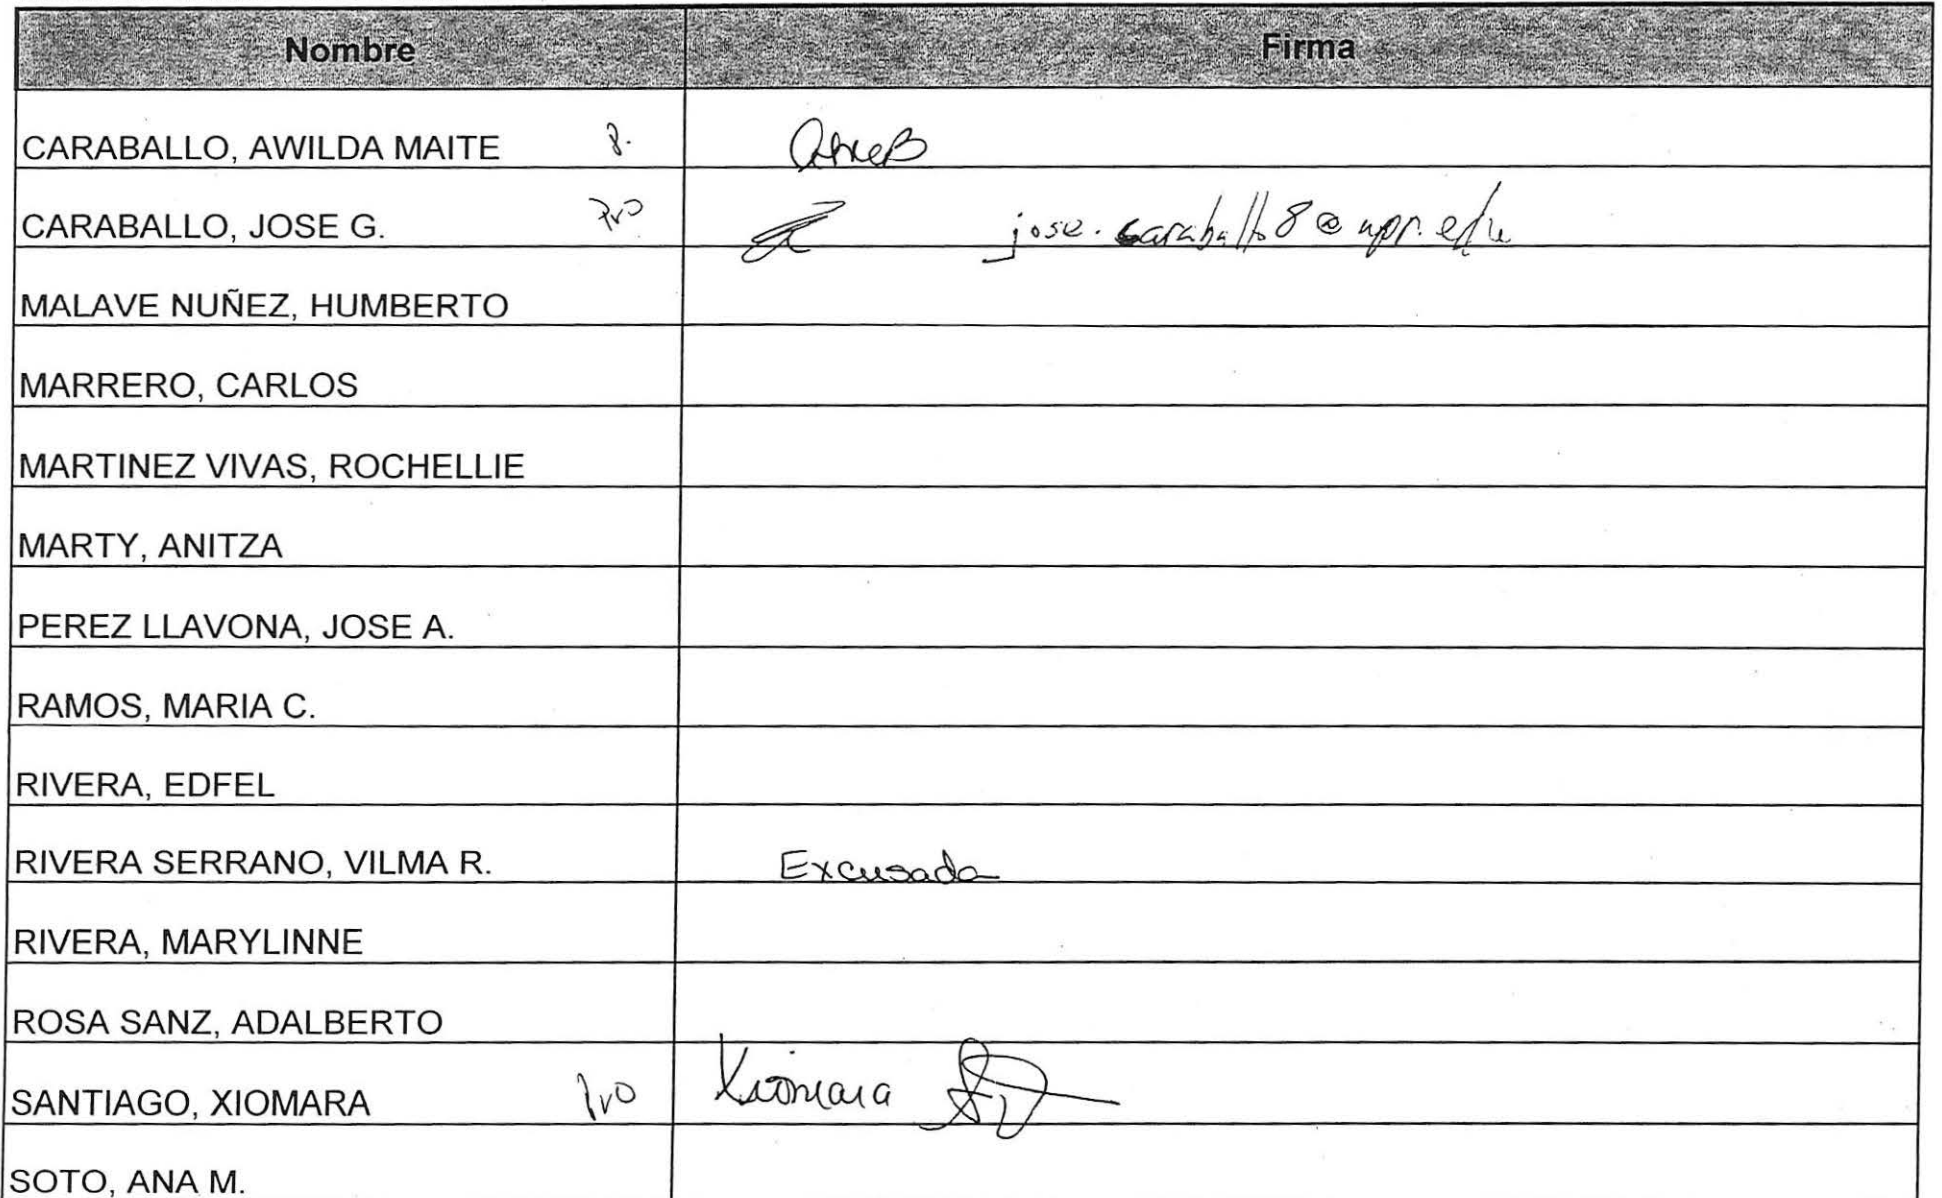 Nombre Firma
CARABALLO, AWILDA MAITE
CARABALLO, JOSE G. Pro jose.caraballo8@upr.edu
MALAVE NUÑEZ, HUMBERTO
MARRERO, CARLOS
MARTINEZ VIVAS, ROCHELLIE
MARTY, ANITZA
PEREZ LLAVONA, JOSE A.
RAMOS, MARIA C.
RIVERA, EDFEL
RIVERA SERRANO, VILMA R. Excusada
RIVERA, MARYLINNE
ROSA SANZ, ADALBERTO
SANTIAGO, XIOMARA Pro Xiomara
SOTO, ANA M.